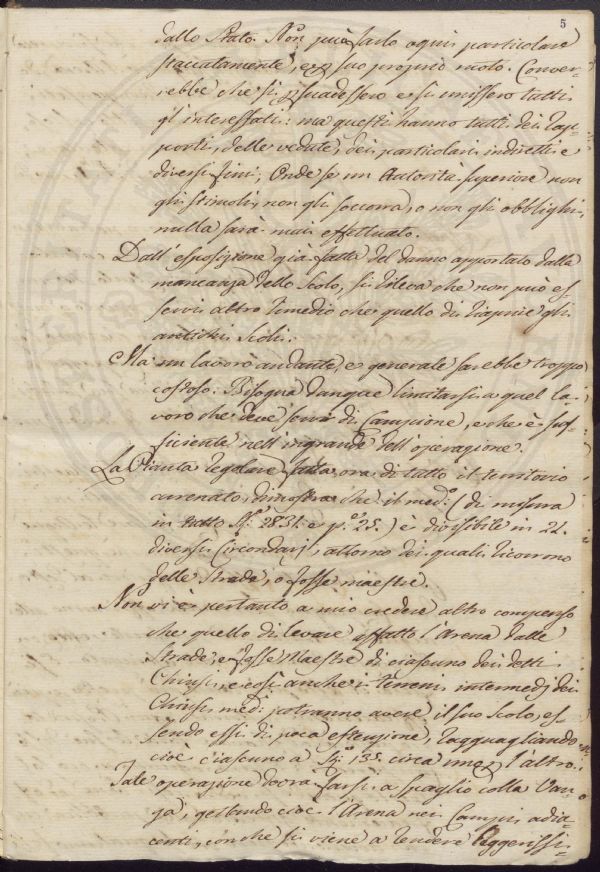 5
dallo Stato. Non può farlo ogni particolare
staccatamente, e p suo proprio moto. Conver-
rebbe che si psuadessero e si unissero tutti
gl'interessati: ma questi hanno tutti dei rap-
porti, delle vedute, dei particolari indiretti e
diversi fini, Onde se un Autorità superiore non
gli stimoli, non gli soccorra, o non gli obblighi,
nulla sarà mai effettuato.
Dall'esposizione già fatta del danno apportato dalla
mancanza dello Scolo, si rileva che non può es
servi altro rimedio che quello di riaprire gli
antichi scoli.
Ma un lavoro andante, e generale sarebbe troppo
costoso. Bisogna dunque limitarsi a quel la-
voro che deve servir di Campione, e che è suf-
ficiente nell'ingrande dell'operazione.
La Pianta regolare fatta ora di tutto il territorio
arrenato, dimostra che il med.o (di misura
in tutto 2831. e p. 25.) è divisibile in 21.
diversi Circondarj, attorno dei quali ricorrono
delle Strade, o fosse maestre.
Non vi è pertanto a mio credere altro compenso
che quello di levare affatto l'arena dalle
Strade, e fosse Maestre di ciascuno dei detti
Chiusi, e così anche i terreni intermedj dei
Chiusi med.i potranno avere il suo Scolo, es
sendo essi di poca estensione, ragguagliando
cioè ciascuno a 135. circa uno p l'altro.
Tale operazione dovrà farsi a spaglio colla Van-
ga, gettando cioè l'Arena nei Campi adia-
centi, con che si viene a rendere leggerissi-